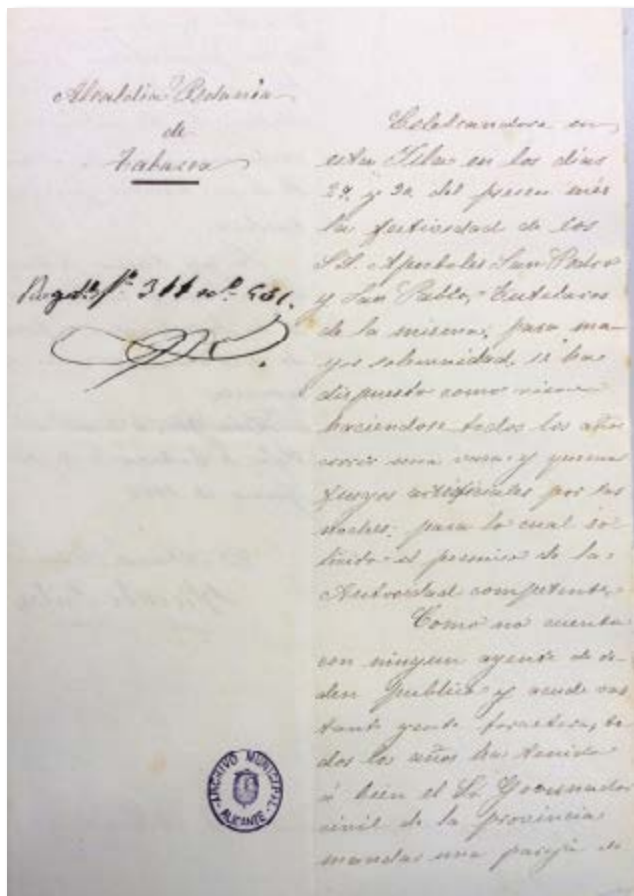 Alcaldia Pedanea
de
Tabarca
Celebrandose en
esta Isla en los dias
29 y 30 del presen mes
la festividad de los
S.S. Apostoles San Pedro
y San Pablo, Tutelares
de la misma, para ma-
yor solemnidad, se ha
dispuesto como viene
haciendose todos los años
correr una vaca y quemar
fuegos artificiales por las
noches, para lo cual so-
licito el permiso de la
Autoridad competente.
Como no cuenta
con ningun agente de or-
den publico y acude bas
tante gente forastera, to-
dos los años ha tenido
á bien el Sr Governador
civil de la provincia
mandar una pareja de
ARCHIVO MUNICIPAL
ALICANTE